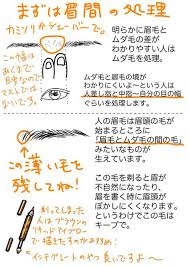 まずは眉間の処理
カミソリやシェーバーで。
明らかに眉毛と
ムダ毛の差が
わかりやすい人は
ムダ毛を処理。
この幅は
あくまで
目安なので
マストでは
ないです。
ムダ毛と眉毛の境が
わかりにくいよ〜という人は
人差し指と中指〜自分の目の幅
ぐらいを処理します。
人の眉毛は眉頭の毛が
始まるところに
「眉毛とムダ毛の間の毛」
みたいなものが
生えています。
この薄い毛を
残してね!
この毛を剃ると眉が
不自然になったり、
眉を書く時に眉頭が
ぼかしにくくなります。
というわけでこの毛は
キープで。
剃ってしまった
人はブラウンの
リキッドアイブロー
で描き足すのがおすすめ!
インテグレートのやつ良いですよ〜